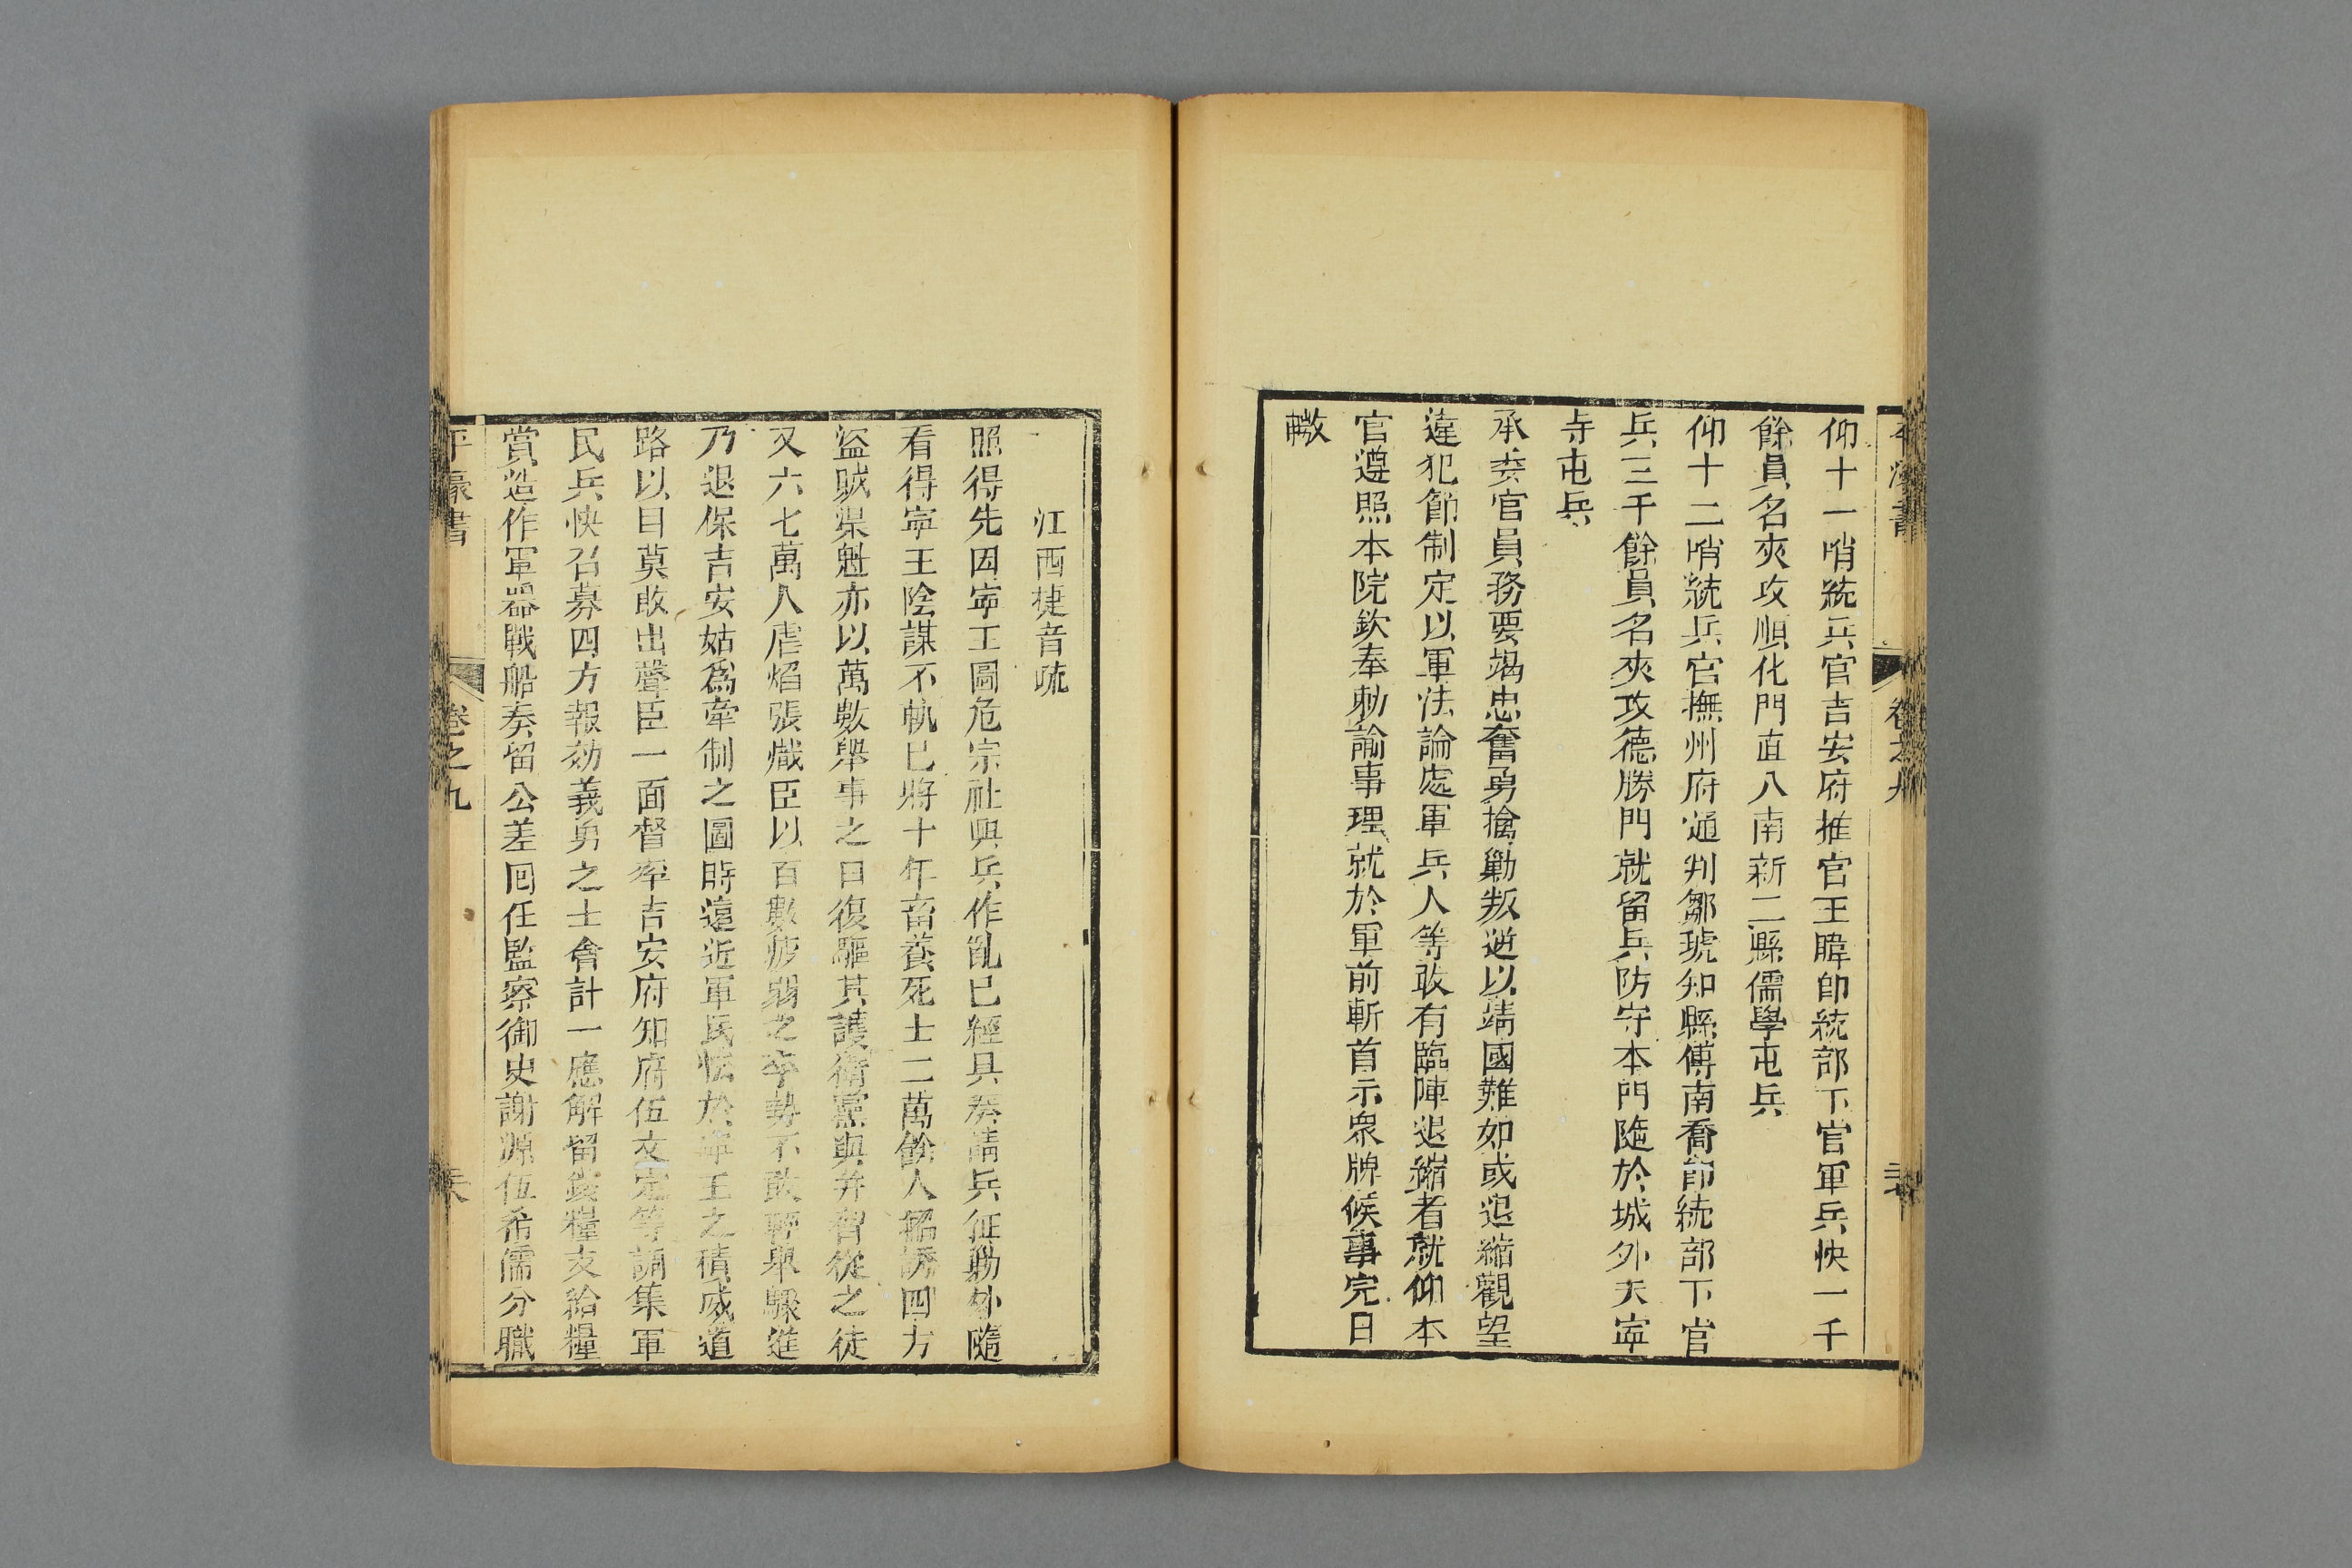 仰十一哨統兵官吉安府推官王暐卽統部下官軍兵快一千
餘員名夾攻順化門直入南新二縣儒學屯兵
仰十二哨統兵官撫州府通判鄒琥知縣傅南喬卽統部下官
兵三千餘員名夾攻德勝門就留兵防守本門隨於城外天寧
寺屯兵
承委官員務要竭忠奮勇擒勦叛逆以靖國難如或退縮觀望
違犯節制定以軍法論處軍兵人等敢有臨陣退縮者就仰本
官遵照本院欽奉勅諭事理就於軍前斬首示衆牌候事完日
繳
江西捷音疏
照得先因寧王圖危宗社興兵作亂已經具奏請兵征勦外隨
看得寧王陰謀不軌已將十年畜養死士二萬餘人招誘四方
盜賊渠魁亦以萬數舉事之日復驅其護衛黨與并脅從之徒
又六七萬人虐焰張熾臣以百數疲弱之卒勢不敢輕舉驟進
乃退保吉安姑爲牽制之圖時遠近軍民怯於寧王之積威道
路以目莫敢出聲臣一面督率吉安府知府伍文定等調集軍
民兵快召募四方報効義勇之士會計一應解留錢糧支給糧
賞造作軍器戰船奏留公差回任監察御史謝源伍希儒分職
平濠書 卷之九